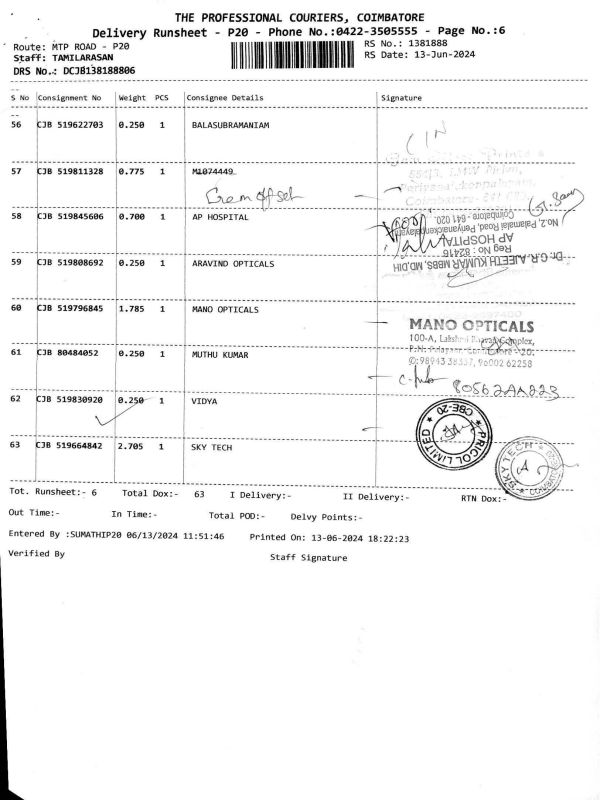 THE PROFESSIONAL COURIERS, COIMBATORE
Delivery Runsheet - P20 - Phone No.:0422-3505555 - Page No.:6
Route: MTP ROAD - P20
RS No.: 1381888
Staff: TAMILARASAN
RS Date: 13-Jun-2024
DRS No.: DCJB138188806
S No Consignment No Weight PCS Consignee Details Signature
56 CJB 519622703 0.250 1 BALASUBRAMANIAM
57 CJB 519811328 0.775 1 M1074449
Gem offset
58 CJB 519845606 0.700 1 AP HOSPITAL
Dr. G.R. AJEETH KUMAR MBBS, MD, DIH
Reg No : 82416
AP HOSPITAL
No.2, Palamalai Road, Periyanaickenpalayam
Coimbatore - 641 020.
59 CJB 519808692 0.250 1 ARAVIND OPTICALS
60 CJB 519796845 1.785 1 MANO OPTICALS
MANO OPTICALS
100-A, Lakshmi Bhavan Complex,
61 CJB 80484052 0.250 1 MUTHU KUMAR
62 CJB 519830920 0.250 1 VIDYA
PRICOL LIMITED
CBE-20
63 CJB 519664842 2.705 1 SKY TECH
SKY TECH
Tot. Runsheet:- 6 Total Dox:- 63 I Delivery:- II Delivery:- RTN Dox:-
Out Time:- In Time:- Total POD:- Delvy Points:-
Entered By :SUMATHIP20 06/13/2024 11:51:46 Printed On: 13-06-2024 18:22:23
Verified By Staff Signature